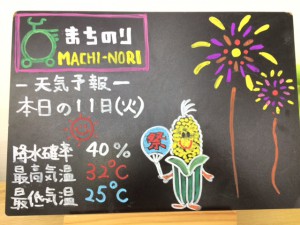 まちのり
MACHI-NORI
－天気予報－
本日の11日(火)
降水確率 40%
最高気温 32℃
最低気温 25℃
祭